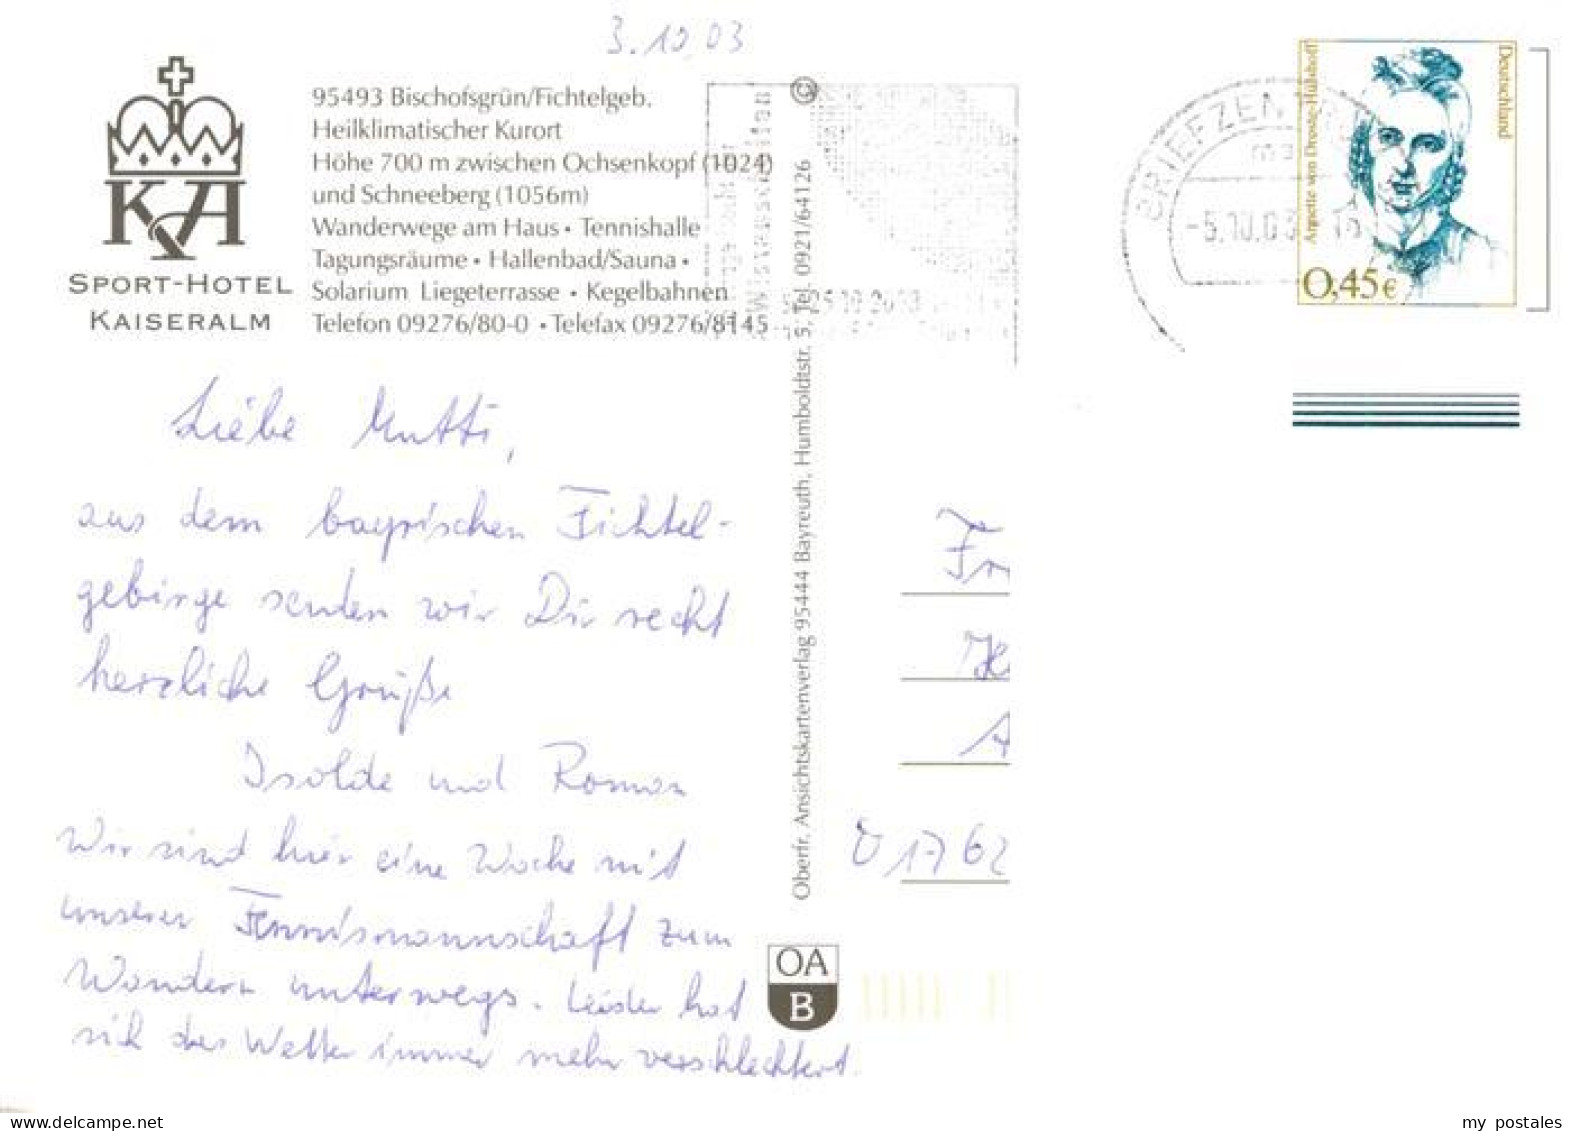 3.10.03
KA
SPORT-HOTEL
KAISERALM
95493 Bischofsgrün/Fichtelgeb.
Heilklimatischer Kurort
Höhe 700 m zwischen Ochsenkopf (1024)
und Schneeberg (1056m)
Wanderwege am Haus • Tennishalle
Tagungsräume • Hallenbad/Sauna •
Solarium Liegeterrasse • Kegelbahnen
Telefon 09276/80-0 • Telefax 09276/8145
Liebe Mutti,
aus dem bayrischen Fichtel-
gebirge senden wir Dir recht
herzliche Grüße
Isolde und Roman
Wir sind hier eine Woche mit
unserer Tennismannschaft zum
Wandern unterwegs. Leider hat
sich das Wetter immer mehr verschlechtert.
© Oberfr. Ansichtskartenverlag 95444 Bayreuth, Humboldtstr. 5, Tel. 0921/64126
OA
B
BRIEFZEN
-5.10.03
Deutschland
Annette von Droste-Hülshoff
0,45€
Fr
A
01762
delcampe.net
my postales